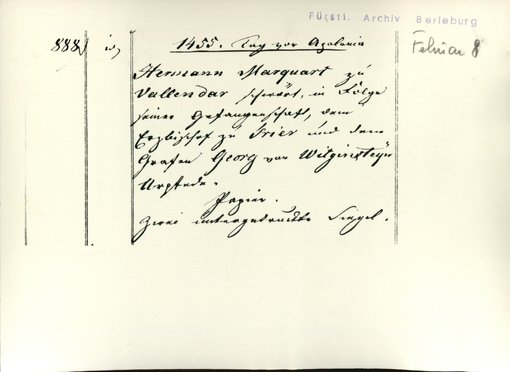 Fürstl. Archiv Berleburg
Februar 8
888
1455. Tag vor Apolonia
Hermann Marquart zu
Vallendar schwört, in Folge
seiner Gefangenschaft, dem
Erzbischof zu Trier und dem
Grafen Georg von Witginsteyn
Urpfede.
Papier.
Zwei untergedruckte Siegel.